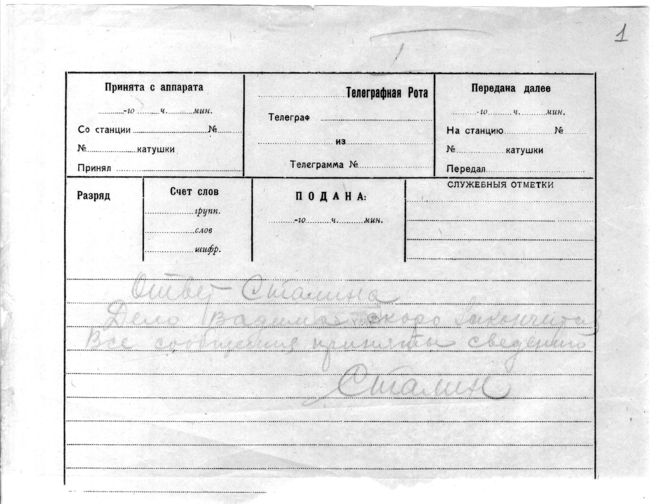 1
Принята с аппарата
-го ч. мин.
Со станции №
№ катушки
Принял
Телеграфная Рота
Телеграф
из
Телеграмма №
Передана далее
-го ч. мин.
На станцию №
№ катушки
Передал
Разряд
Счет слов
групп.
слов
шифр.
ПОДАНА:
-го ч. мин.
СЛУЖЕБНЫЯ ОТМЕТКИ
Ответ Сталина
Дело Вадима скоро
Все сообщения приняты
Сталин